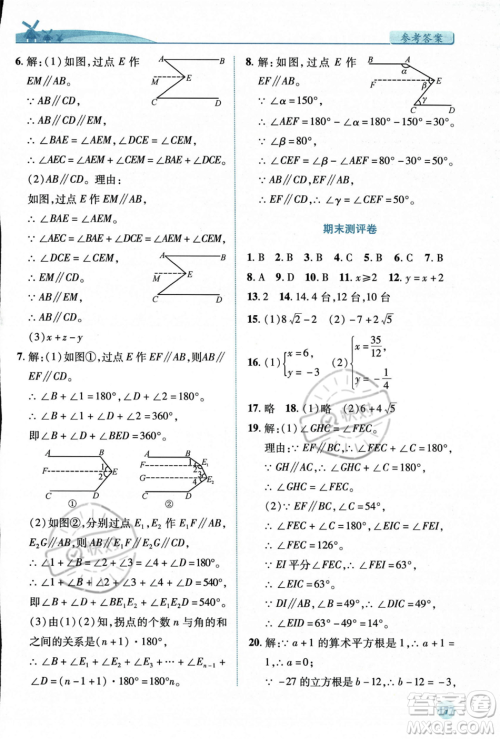 参考答案
6. 解：(1)如图，过点 E 作
EM∥AB。
∵ AB∥CD，
∴ EM∥AB∥CD，
∴ ∠BAE=∠AEM，∠DCE=∠CEM，
∴ ∠AEC=∠AEM+∠CEM=∠BAE+∠DCE。
(2)AB∥CD。理由：
如图，过点 E 作 EM∥AB，
∴ ∠BAE=∠AEM。
∵ ∠AEC=∠AEM+∠CEM，
∠AEC=∠BAE+∠DCE，
∴ ∠CEM=∠DCE，
∴ EM∥CD，
∴ AB∥CD。
(3)x+z-y
7. 解：(1)如图①，过点 E 作 EF∥AB，则 AB∥
EF∥CD，
∴ ∠B+∠1=180°，∠D+∠2=180°，
∴ ∠B+∠1+∠D+∠2=360°，
即∠B+∠D+∠BED=360°。
A B
F E
C D
①
②
(2)如图②，分别过点 E₁，E₂ 作 E₁F∥AB，
E₂G∥AB，则 AB∥E₁F∥E₂G∥CD，
∴ ∠1+∠B=∠2+∠3=∠4+∠D=180°，
∴ ∠1+∠B+∠2+∠3+∠4+∠D=540°，
即∠B+∠BE₁E₂+∠E₁E₂D+∠D=540°。
(3)由(1)(2)知，拐点的个数 n 与角的和
之间的关系是(n+1)·180°，
∴ ∠B+∠E₁+∠E₂+…+∠Eₙ₋₁+∠Eₙ+
∠D=(n+1)·180°。
8. 解：如图，过点 E 作
EF∥AB，
∴ ∠α+∠AEF=180°。
∵ ∠α=150°，
∴ ∠AEF=180°-150°=30°。
∵ ∠β=80°，
∴ ∠CEF=∠β-∠AEF=80°-30°=50°。
∵ AB∥CD，
∴ EF∥CD，
∴ ∠γ=∠CEF=50°。
期末测评卷
1. B 2. B 3. B 4. B 5. B 6. D 7. B
8. A 9. D 10. D 11. x≥2 12. y=x+2
13. 2 14. 4 台，12 台，10 台
15. (1)8√2-2 (2)-7+2√5
16. (1){x=6, y=-3 (2){x=35/12, y=-1/4
17. 略 18. (1)略 (2)6+4√5
19. 解：∠GHC=∠FEC。
理由：∵ EF∥BC，∴ ∠FEC+∠C=180°。
∵ GH∥AC，∴ ∠GHC+∠C=180°，
∴ ∠GHC=∠FEC。
∵ ∠C=54°，
∴ ∠FEC=126°。
∵ EI 平分∠FEC，∴ ∠FEI=63°。
∵ DI∥AB，∠B=49°，
∴ ∠DIC=∠B=49°，
20. 解：∵ a+1 的算术平方根是 1，∴ a+1=1，
∴ a=0。
∵ -27 的立方根是 b-12，∴ b-12=-3，